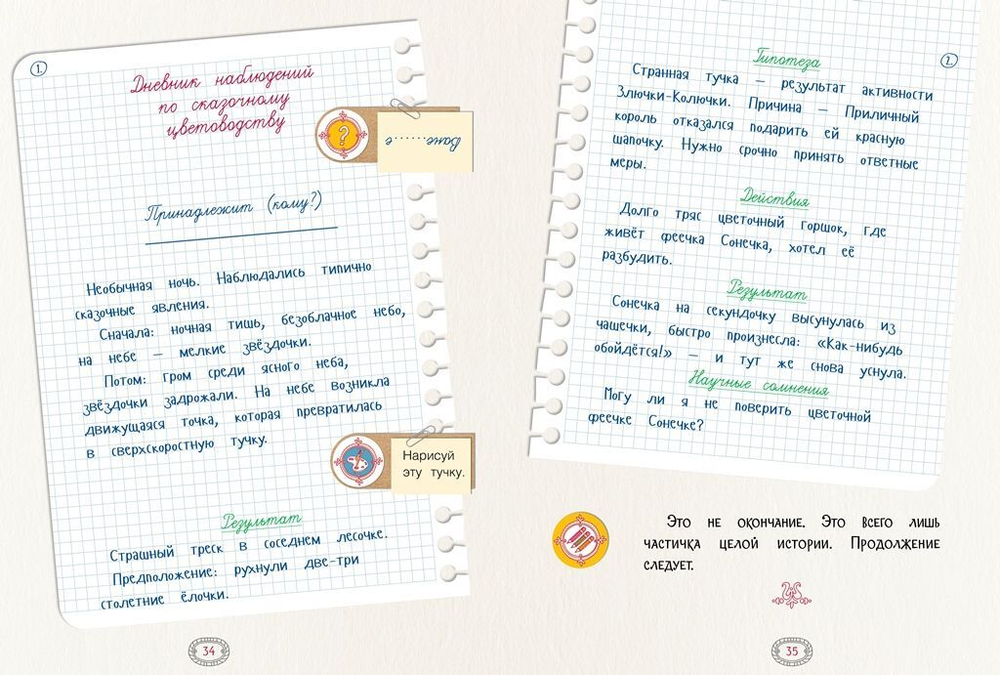 1.
Дневник наблюдений
по сказочному
цветоводству
?
Ване.....е
Принадлежит (кому?)
Необычная ночь. Наблюдались типично
сказочные явления.
Сначала: ночная тишь, безоблачное небо,
на небе — мелкие звёздочки.
Потом: гром среди ясного неба,
звёздочки задрожали. На небе возникла
движущаяся точка, которая превратилась
в сверхскоростную тучку.
Нарисуй
эту тучку.
Результат
Страшный треск в соседнем лесочке.
Предположение: рухнули две-три
столетние ёлочки.
34
2.
Гипотеза
Странная тучка — результат активности
Злючки-Колючки. Причина — Приличный
король отказался подарить ей красную
шапочку. Нужно срочно принять ответные
меры.
Действия
Долго тряс цветочный горшок, где
живёт феечка Сонечка, хотел её
разбудить.
Результат
Сонечка на секундочку высунулась из
чашечки, быстро произнесла: «Как-нибудь
обойдётся!» — и тут же снова уснула.
Научные сомнения
Могу ли я не поверить цветочной
феечке Сонечке?
Это не окончание. Это всего лишь
частичка целой истории. Продолжение
следует.
35